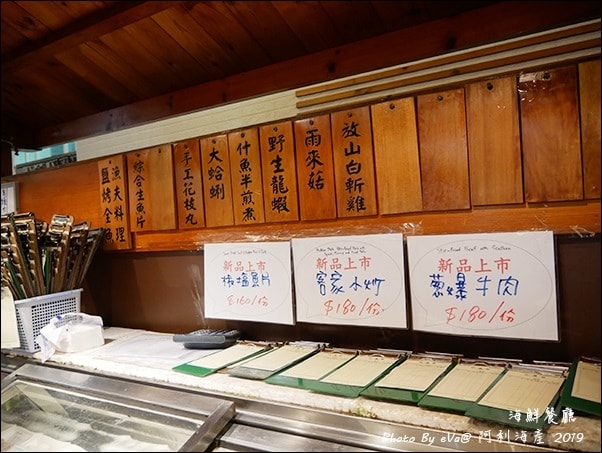 鹽烤全魚
漁夫料理
綜合生魚片
手工花枝丸
大蛤蜊
什魚半煎煮
野生龍蝦
雨來菇
放山白斬雞
新品上市
椒塩魚片
$160/份
新品上市
客家小炒
$180/份
新品上市
蔥爆牛肉
$180/份
海鮮餐廳
Photo By eVa@ 阿利海產 2019